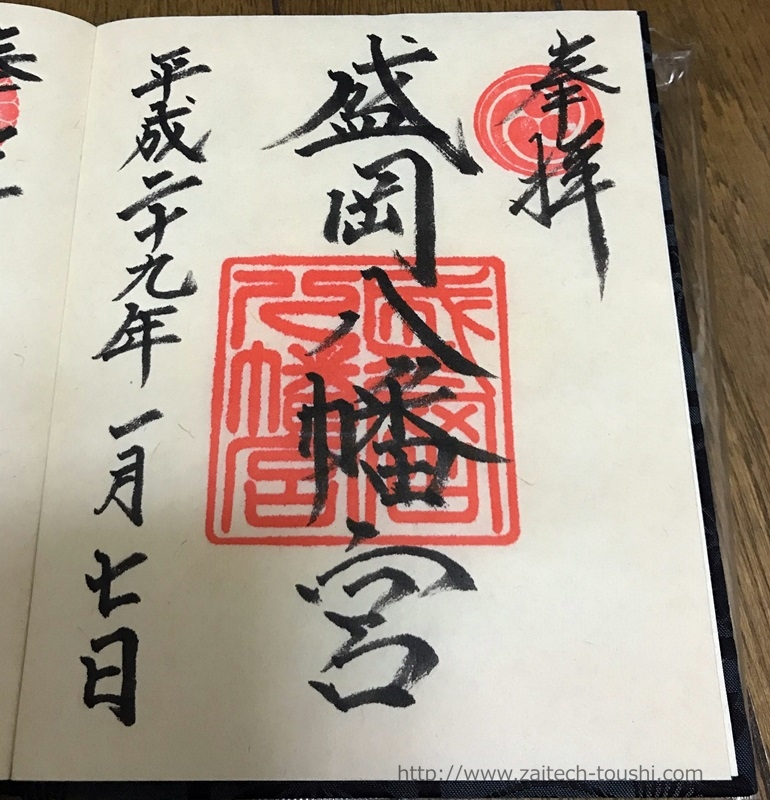 奉拝
盛岡八幡宮
平成二十九年一月七日
盛岡
八幡宮
http://www.zaitech-toushi.com